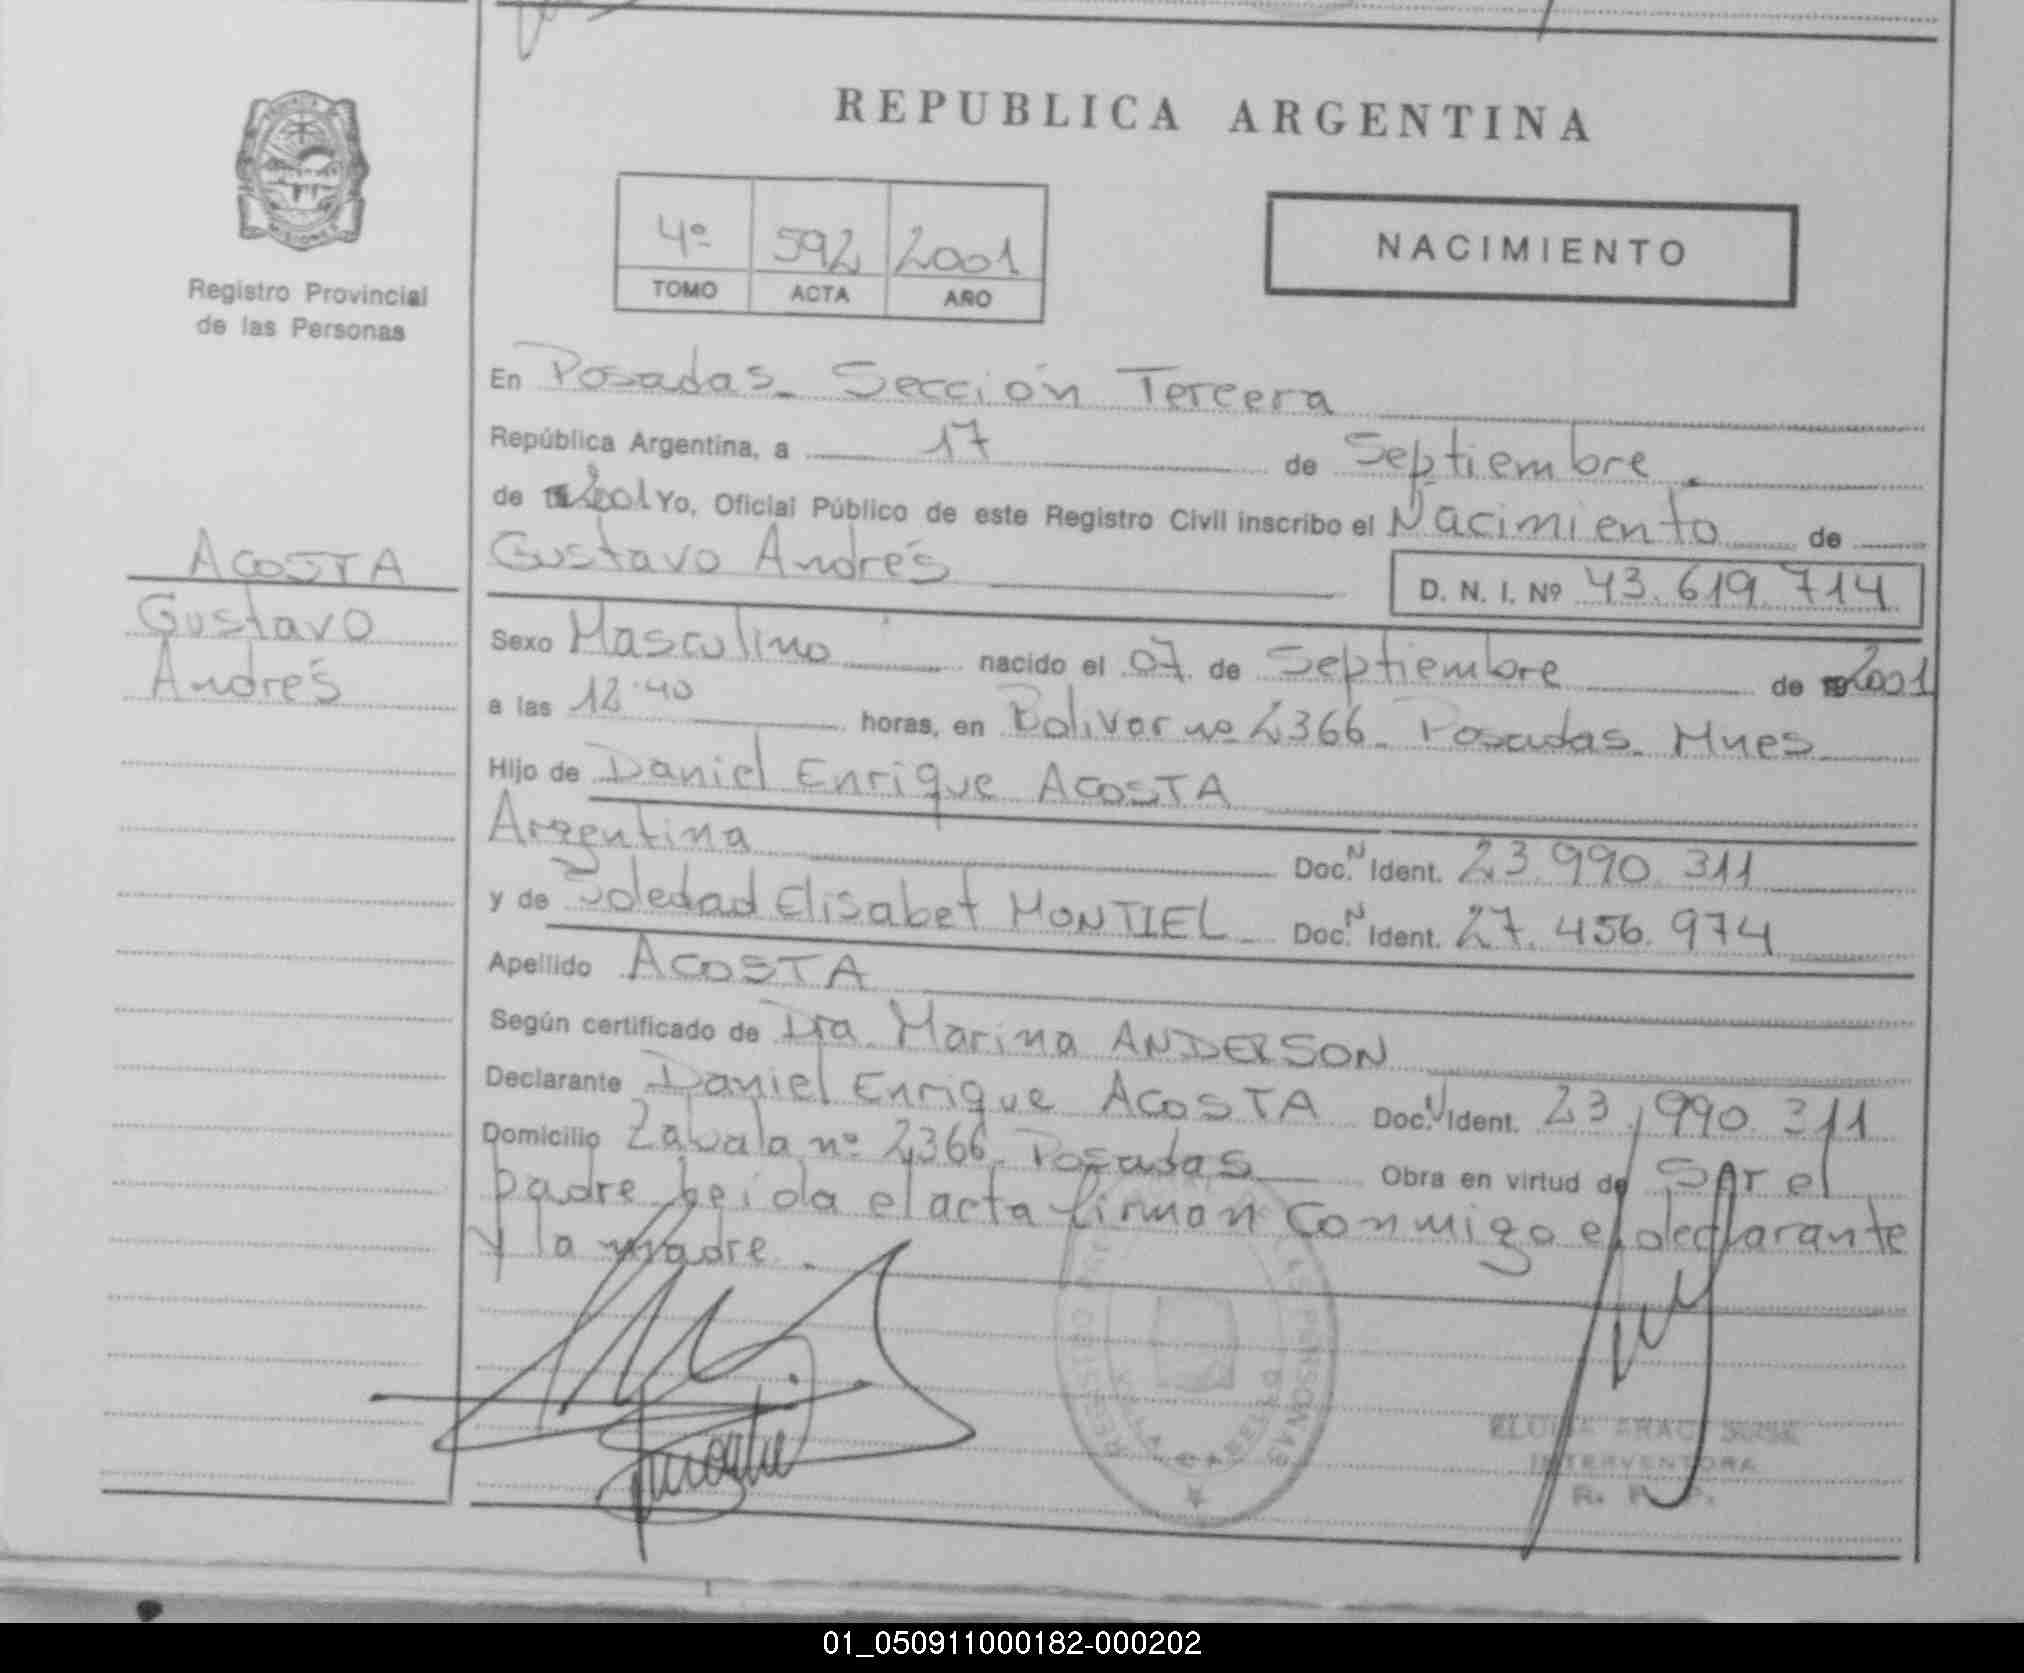 REPUBLICA ARGENTINA
MISIONES
Registro Provincial
de las Personas
4º 592 2001
TOMO ACTA AÑO
NACIMIENTO
En Posadas - Sección Tercera
República Argentina, a 17 de Septiembre.
de 2001 Yo, Oficial Público de este Registro Civil inscribo el Nacimiento de
ACOSTA
Gustavo
Andrés
Gustavo Andrés D. N. I. Nº 43.619.714
Sexo Masculino nacido el 07 de Septiembre de 2001
a las 12:40 horas, en Bolivar nº 2366 - Posadas - Mnes
Hijo de Daniel Enrique ACOSTA
Argentina Doc. N Ident. 23.990.311
y de Soledad Elisabet MONTIEL - Doc. N Ident. 27.456.974
Apellido ACOSTA
Según certificado de Dra. Marina ANDERSON
Declarante Daniel Enrique ACOSTA Doc. N Ident. 23.990.311
Domicilio Zavala nº 2366 - Posadas Obra en virtud de Ser el
padre leida el acta firman conmigo el declarante
y la madre.
REGISTRO PERSONAS
VILLA CABELLO
INTERVENTORA
R. P. P.
01_050911000182-000202